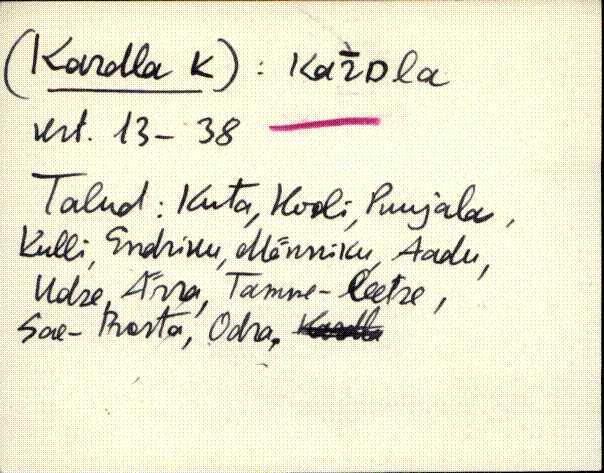 (Kardla K) : kažDla
vrt. 13-38
Talud : Kuta, Hooli, Punjala,
Kulli, Endriku, Männiku, Aadu,
Udre, Ärra, Tamme-
Sae- Prosta, Odra,